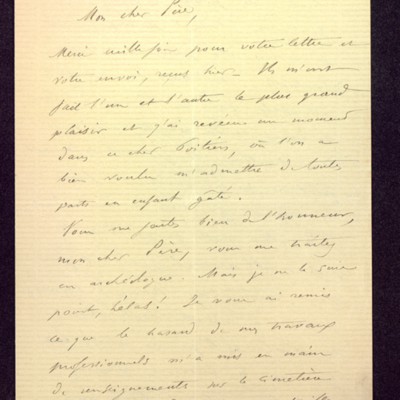 Mon cher Père,
Merci mille fois pour votre lettre et
votre envoi, reçus hier – Ils m'ont
fait l'un et l'autre le plus grand
plaisir et j'ai revécu un moment
dans ce cher Poitiers, où l'on a
bien voulu m'admettre de toutes
parts en enfant gâté.
Vous me faites bien de l'honneur,
mon cher Père, vous me traitez
en archéologue. Mais je ne le suis
point, hélas! Je vous ai remis
ce que le hasard de mes travaux
professionnels m'a mis en main
de renseignements sur le cimetière